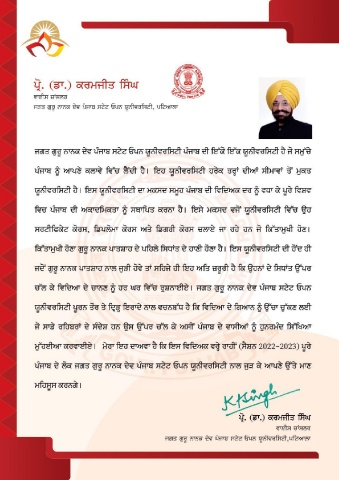 ਪ੍ਰੋ. (ਡਾ.) ਕਰਮਜੀਤ ਸਿੰਘ
ਵਾਈਸ ਚਾਂਸਲਰ
ਜਗਤ ਗੁਰੂ ਨਾਨਕ ਦੇਵ ਪੰਜਾਬ ਸਟੇਟ ਓਪਨ ਯੂਨੀਵਰਸਿਟੀ, ਪਟਿਆਲਾ
ਜਗਤ ਗੁਰੂ ਨਾਨਕ ਦੇਵ ਪੰਜਾਬ ਸਟੇਟ ਓਪਨ ਯੂਨੀਵਰਸਿਟੀ ਪੰਜਾਬ ਦੀ ਇੱਕੋ ਇੱਕ ਯੂਨੀਵਰਸਿਟੀ ਹੈ ਜੋ ਸਮੁੱਚੇ
ਪੰਜਾਬ ਨੂੰ ਆਪਣੇ ਕਲਾਵੇ ਵਿੱਚ ਲੈਂਦੀ ਹੈ। ਇਹ ਯੂਨੀਵਰਸਿਟੀ ਹਰੇਕ ਤਰ੍ਹਾਂ ਦੀਆਂ ਸੀਮਾਵਾਂ ਤੋਂ ਮੁਕਤ
ਯੂਨੀਵਰਸਿਟੀ ਹੈ। ਇਸ ਯੂਨੀਵਰਸਿਟੀ ਦਾ ਮਕਸਦ ਸਮੂਹ ਪੰਜਾਬ ਦੀ ਵਿਦਿਅਕ ਦਰ ਨੂੰ ਵਧਾ ਕੇ ਪੂਰੇ ਵਿਸ਼ਵ
ਵਿਚ ਪੰਜਾਬ ਦੀ ਅਕਾਦਮਿਕਤਾ ਨੂੰ ਸਥਾਪਿਤ ਕਰਨਾ ਹੈ। ਇਸੇ ਮਕਸਦ ਵਜੋਂ ਯੂਨੀਵਰਸਿਟੀ ਵਿੱਚ ਉਹ
ਸਰਟੀਫਿਕੇਟ ਕੋਰਸ, ਡਿਪਲੋਮਾ ਕੋਰਸ ਅਤੇ ਡਿਗਰੀ ਕੋਰਸ ਚਲਾਏ ਜਾ ਰਹੇ ਹਨ ਜੋ ਕਿੱਤਾਮੁਖੀ ਹੋਣ।
ਕਿੱਤਾਮੁਖੀ ਹੋਣਾ ਗੁਰੂ ਨਾਨਕ ਪਾਤਸ਼ਾਹ ਦੇ ਪਹਿਲੇ ਸਿਧਾਂਤ ਦੇ ਹਾਣੀ ਹੋਣਾ ਹੈ। ਇਸ ਯੂਨੀਵਰਸਿਟੀ ਦੀ ਹੋਂਦ ਹੀ
ਜਦੋਂ ਗੁਰੂ ਨਾਨਕ ਪਾਤਸ਼ਾਹ ਨਾਲ ਜੁੜੀ ਹੋਵੇ ਤਾਂ ਸਹਿਜੇ ਹੀ ਇਹ ਅਤਿ ਜ਼ਰੂਰੀ ਹੈ ਕਿ ਉਹਨਾਂ ਦੇ ਸਿਧਾਂਤ ਉੱਪਰ
ਚੱਲ ਕੇ ਵਿਦਿਆ ਦੇ ਚਾਨਣ ਨੂੰ ਹਰ ਘਰ ਵਿੱਚ ਰੁਸ਼ਨਾਈਏ। ਜਗਤ ਗੁਰੂ ਨਾਨਕ ਦੇਵ ਪੰਜਾਬ ਸਟੇਟ ਓਪਨ
ਯੂਨੀਵਰਸਿਟੀ ਪੂਰਨ ਤੌਰ ਤੇ ਦ੍ਰਿੜ੍ਹ ਇਰਾਦੇ ਨਾਲ ਵਚਨਬੱਧ ਹੈ ਕਿ ਵਿਦਿਆ ਦੇ ਗਿਆਨ ਨੂੰ ਉੱਚਾ ਚੁੱਕਣ ਲਈ
ਜੋ ਸਾਡੇ ਰਹਿਬਰਾਂ ਦੇ ਸੰਦੇਸ਼ ਹਨ ਉਸ ਉੱਪਰ ਚੱਲ ਕੇ ਅਸੀਂ ਪੰਜਾਬ ਦੇ ਵਾਸੀਆਂ ਨੂੰ ਹੁਨਰਮੰਦ ਸਿੱਖਿਆ
ਮੁੱਹਈਆ ਕਰਵਾਈਏ। ਮੇਰਾ ਇਹ ਦਾਅਵਾ ਹੈ ਕਿ ਇਸ ਵਿਦਿਅਕ ਵਰ੍ਹੇ ਰਾਹੀਂ (ਸੈਸ਼ਨ 2022-2023) ਪੂਰੇ
ਪੰਜਾਬ ਦੇ ਲੋਕ ਜਗਤ ਗੁਰੂ ਨਾਨਕ ਦੇਵ ਪੰਜਾਬ ਸਟੇਟ ਓਪਨ ਯੂਨੀਵਰਸਿਟੀ ਨਾਲ ਜੁੜ ਕੇ ਆਪਣੇ ਉੱਤੇ ਮਾਣ
ਮਹਿਸੂਸ ਕਰਨਗੇ।
KKSingh
ਪ੍ਰੋ. (ਡਾ.) ਕਰਮਜੀਤ ਸਿੰਘ
ਵਾਈਸ ਚਾਂਸਲਰ
ਜਗਤ ਗੁਰੂ ਨਾਨਕ ਦੇਵ ਪੰਜਾਬ ਸਟੇਟ ਓਪਨ ਯੂਨੀਵਰਸਿਟੀ,ਪਟਿਆਲਾ